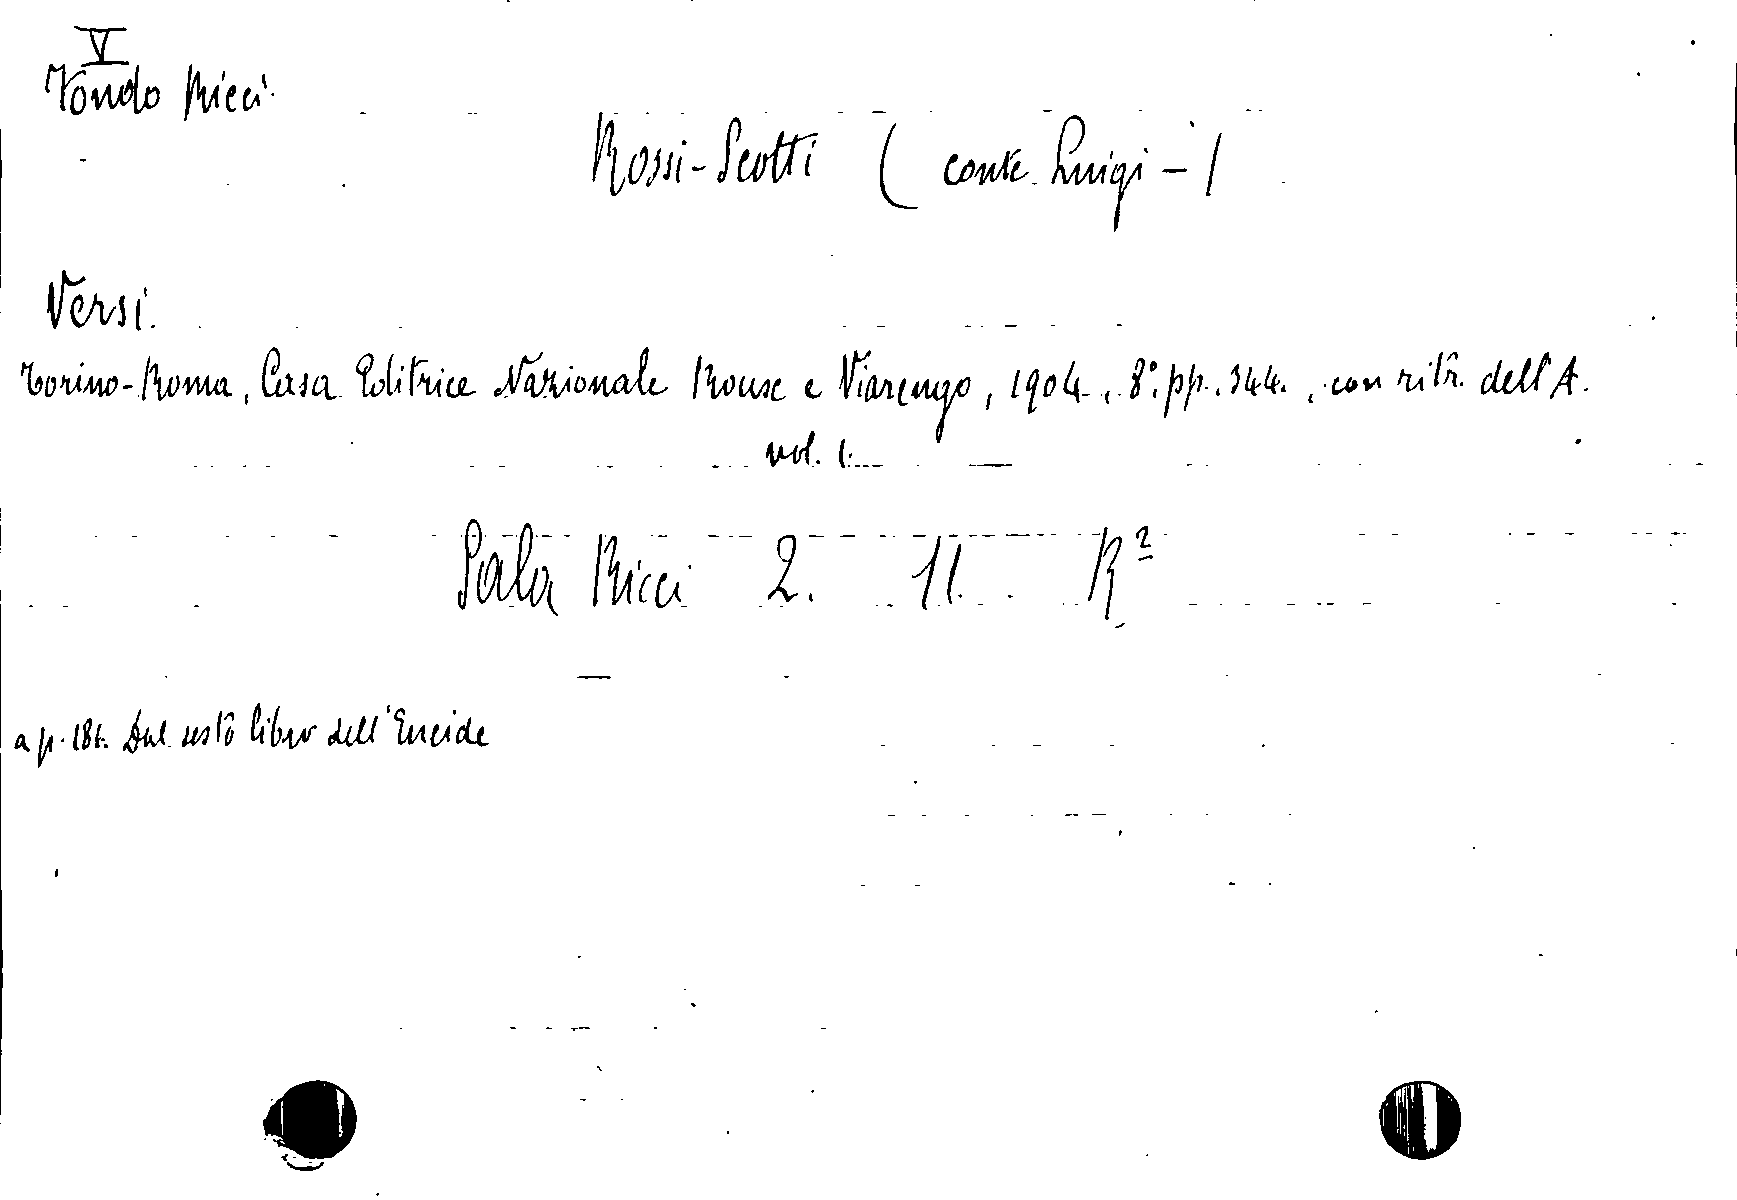 V
Fondo Ricci.
Rossi-Scotti ( conte Luigi - )
Versi.
Torino-Roma, Casa Editrice Nazionale Roux e Viarengo, 1904., 8°. pp. 344., con ritr. dell'A.
vol. 1.
Sala Ricci 2. 11. R²
a p. 181. Dal sesto libro dell'Eneide